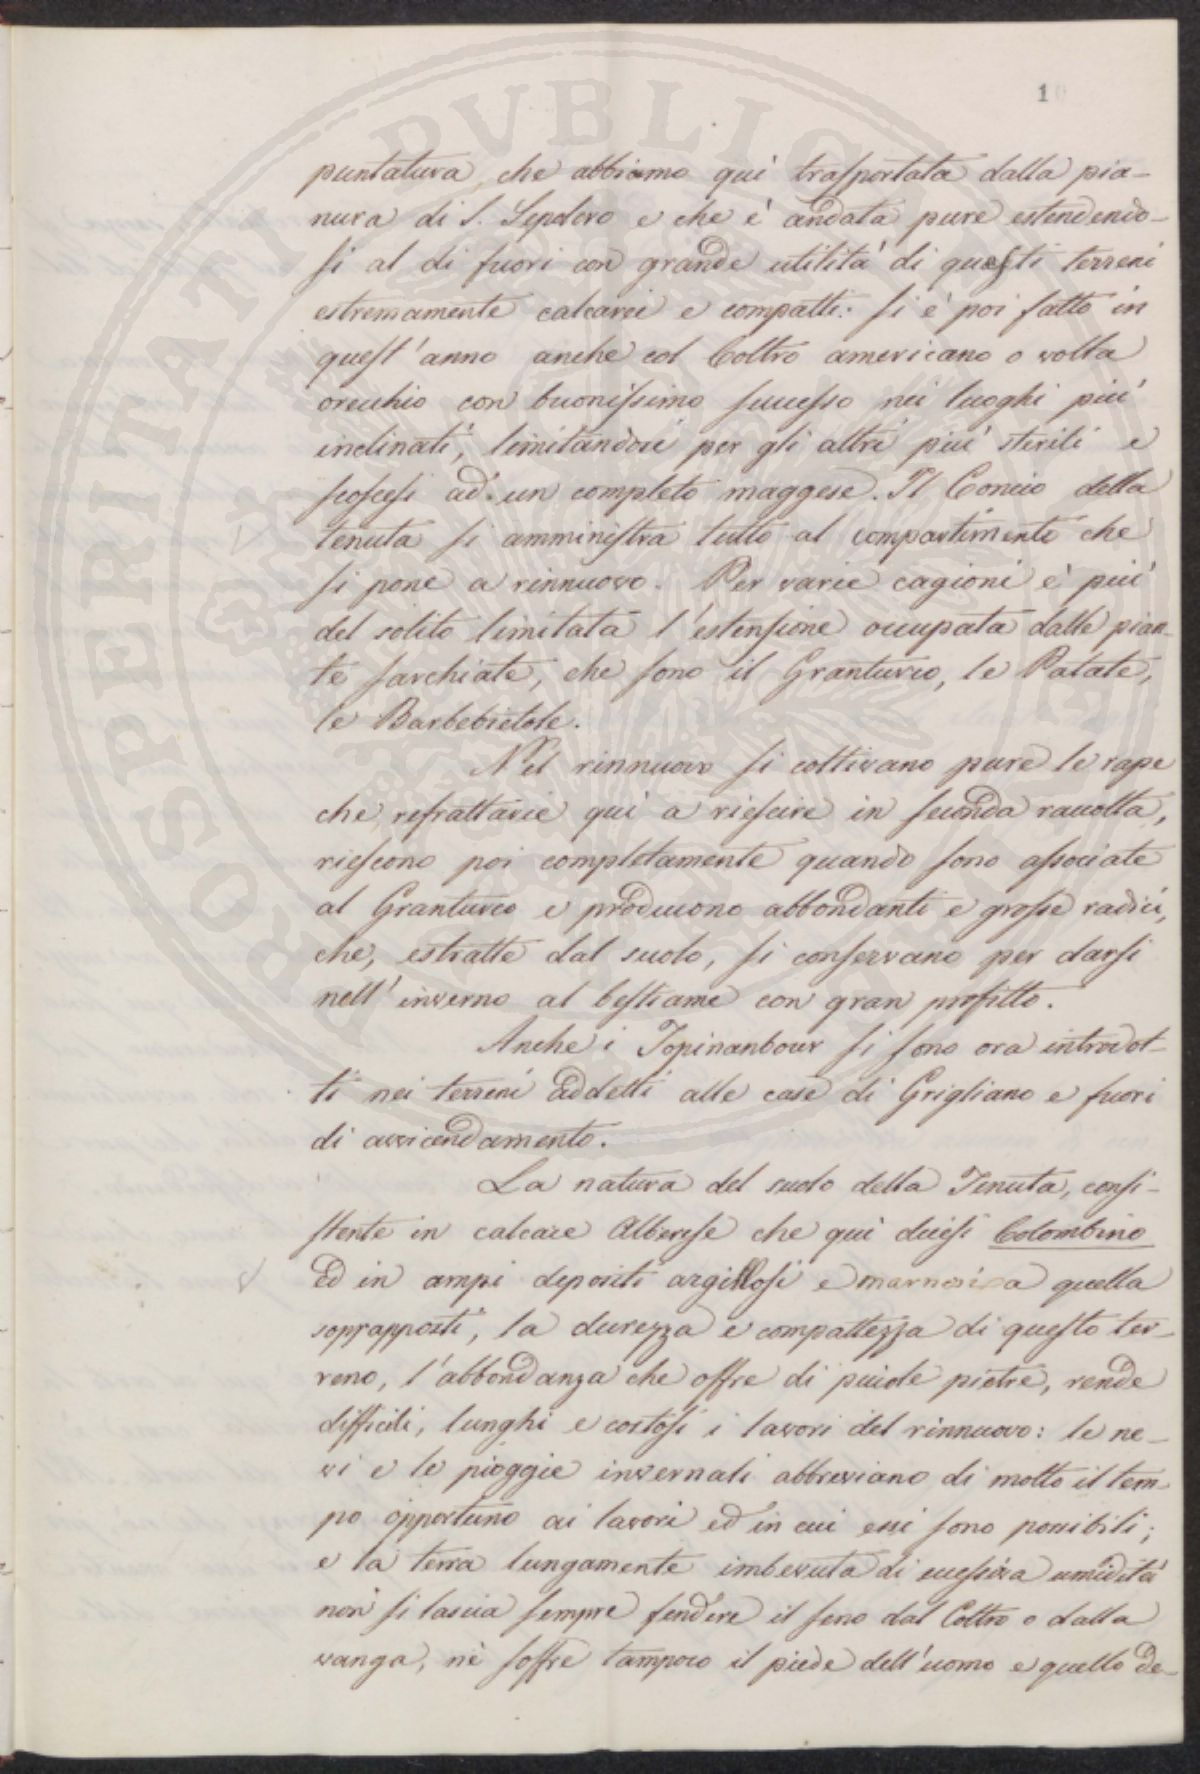 10
puntatura che abbiamo quì trasportata dalla pia-
nura di S. Sepolcro e che è andata pure estendendo-
si al di fuori con grande utilità di questi terreni
estremamente calcarei e compatti. Si è poi fatto in
quest'anno anche col Coltro americano o volta
orecchio con buonissimo successo nei luoghi più
inclinati, limitandosi per gli altri più sterili e
scoscesi ad un completo maggese. Il Concio della
tenuta si amministra tutto al compartimento che
si pone a rinnuovo. Per varie cagioni è più
del solito limitata l'estensione occupata dalle pian-
te sarchiate, che sono il Granturco, le Patate,
le Barbebietole.
Nel rinnuovo si coltivano pure le rape
che refrattarie quì a riescire in seconda raccolta,
riescono poi completamente quando sono associate
al Granturco e producono abbondanti e grosse radici,
che, estratte dal suolo, si conservano per darsi
nell'inverno al bestiame con gran profitto.
Anche i Topinanbour si sono ora introdot-
ti nei terreni addetti alle case di Grigliano e fuori
di avvicendamento.
La natura del suolo della Tenuta, consi-
stente in calcare Alberese che quì dicesi Colombino
ed in ampi depositi argillosi e marnosi a quella
soprapposti, la durezza e compattezza di questo ter-
reno, l'abbondanza che offre di piccole pietre, rende
difficili, lunghi e costosi i lavori del rinnuovo: le ne-
vi e le pioggie invernali abbreviano di molto il tem-
po opportuno ai lavori ed in cui essi sono possibili;
e la terra lungamente imbevuta di eccessiva umidità
non si lascia sempre fendere il seno dal Coltro o dalla
vanga, nè soffre tampoco il piede dell'uomo e quello de-
PROSPERITATI PVBLICAE